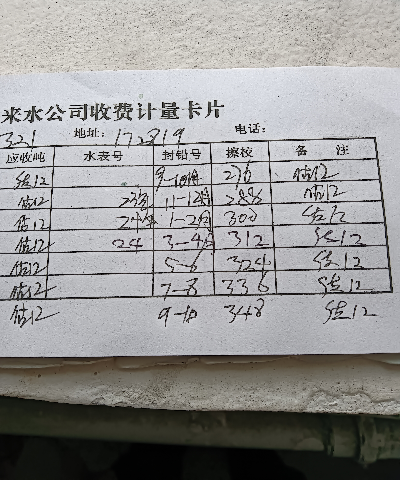 来水公司收费计量卡片
321 地址: 172819 电话:
应收吨 水表号 封铅号 擦校 备 注
估12 9-10月 276 估12
估12 11-12月 288 估12
估12 24 1-2月 300 估12
估12 24 3-4月 312 估12
估12 5-6 324 估12
估12 7-8 336 估12
估12 9-10 348 估12